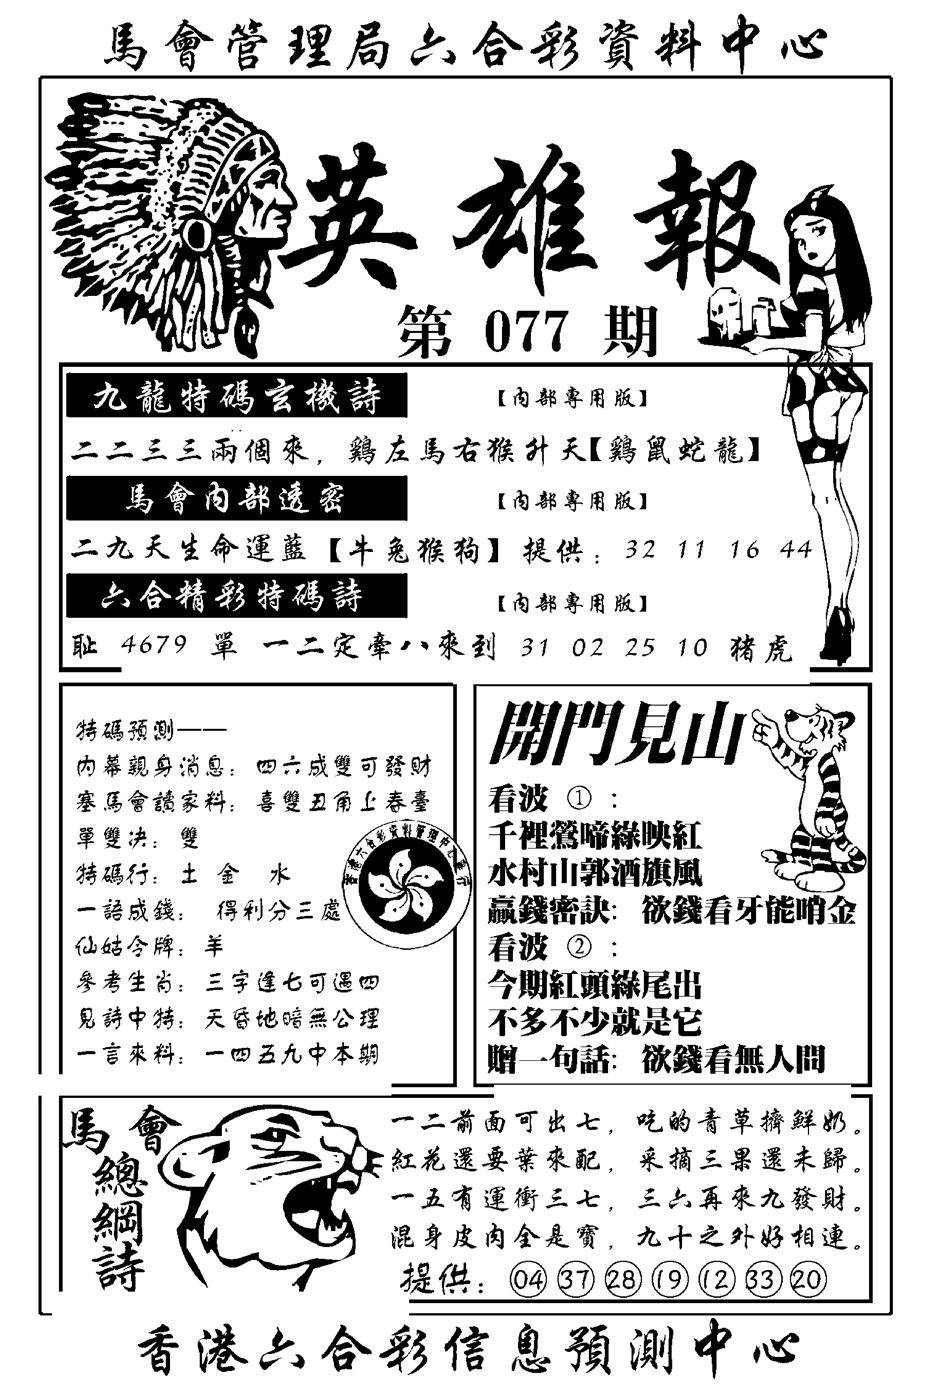 馬會管理局六合彩資料中心
英雄報
第 077 期
九龍特碼玄機詩 【內部專用版】
二二三三兩個來，鷄左馬右猴升天【鷄鼠蛇龍】
馬會內部透密 【內部專用版】
二九天生命運藍【牛兔猴狗】提供：32 11 16 44
六合精彩特碼詩 【內部專用版】
耻 4679 單 一二定牽八來到 31 02 25 10 猪虎
特碼預測——
內幕親身消息：四六成雙可發財
塞馬會讀家料：喜雙丑角上春臺
單雙决：雙
特碼行：土 金 水
一語成錢： 得利分三處
仙姑令牌：羊
參考生肖：三字逢七可遇四
見詩中特：天昏地暗無公理
一言來料：一四五九中本期
香港六合彩資料管理中心發行
開門見山
看波 ①：
千裡鶯啼綠映紅
水村山郭酒旗風
贏錢密訣：欲錢看牙能啃金
看波 ②：
今期紅頭綠尾出
不多不少就是它
贈一句話：欲錢看無人問
馬會
總綱詩
一二前面可出七，吃的青草擠鮮奶。
紅花還要葉來配，采摘三果還未歸。
一五有運衝三七，三六再來九發財。
混身皮肉全是寶，九十之外好相連。
提供：04 37 28 19 12 33 20
香港六合彩信息預測中心